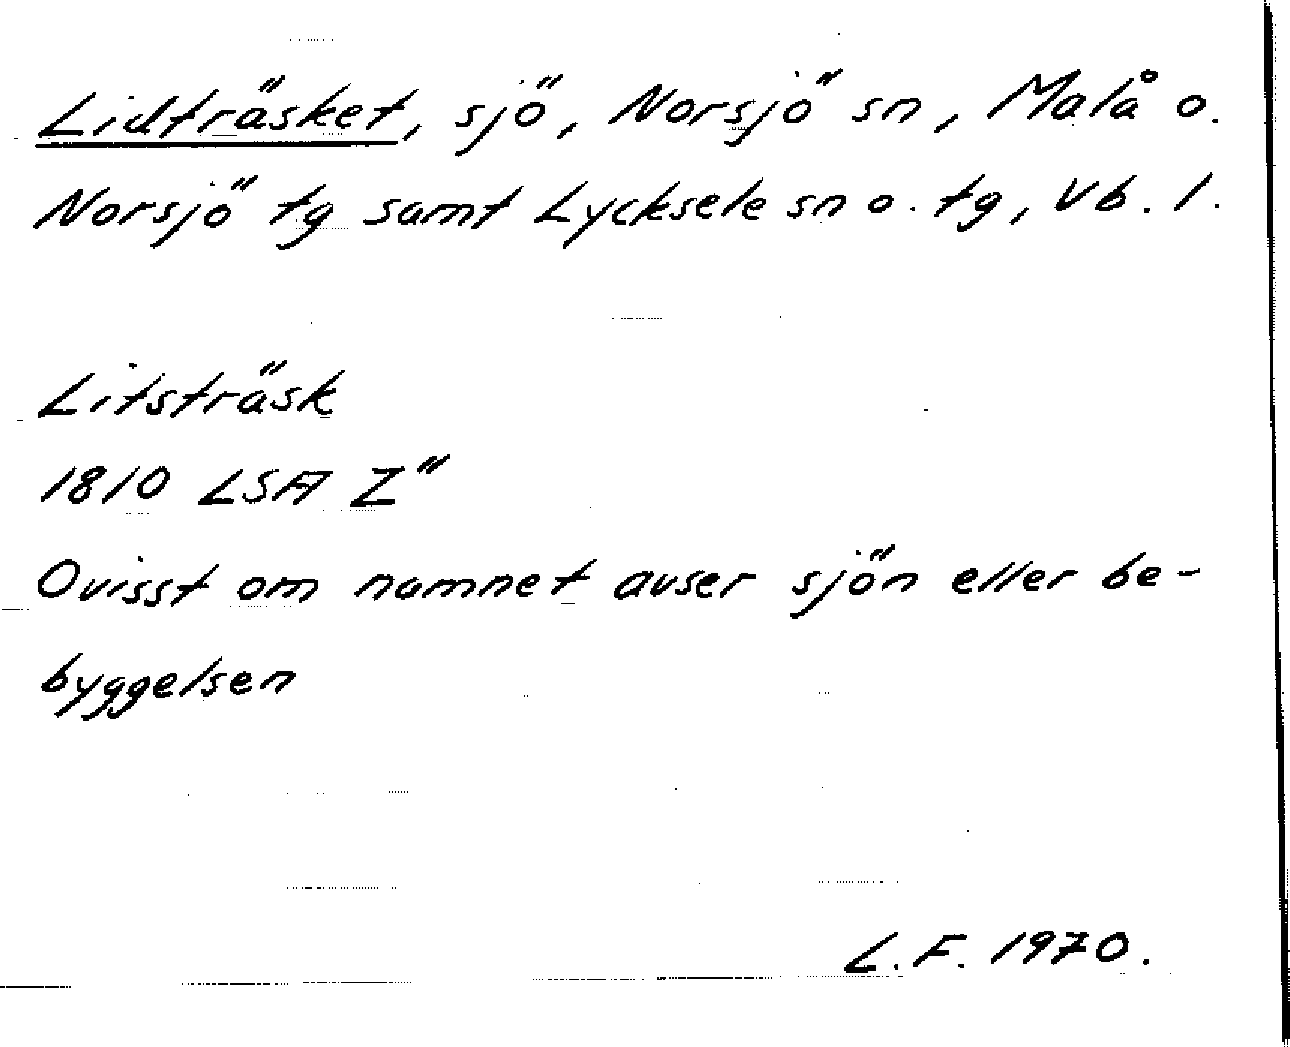 Lidträsket, sjö, Norsjö sn, Malå o.
Norsjö tg samt Lycksele sn o. tg, Vb. l.
Litsträsk
1810 LSA Z"
Ovisst om namnet avser sjön eller be-
byggelsen
L.F. 1970.